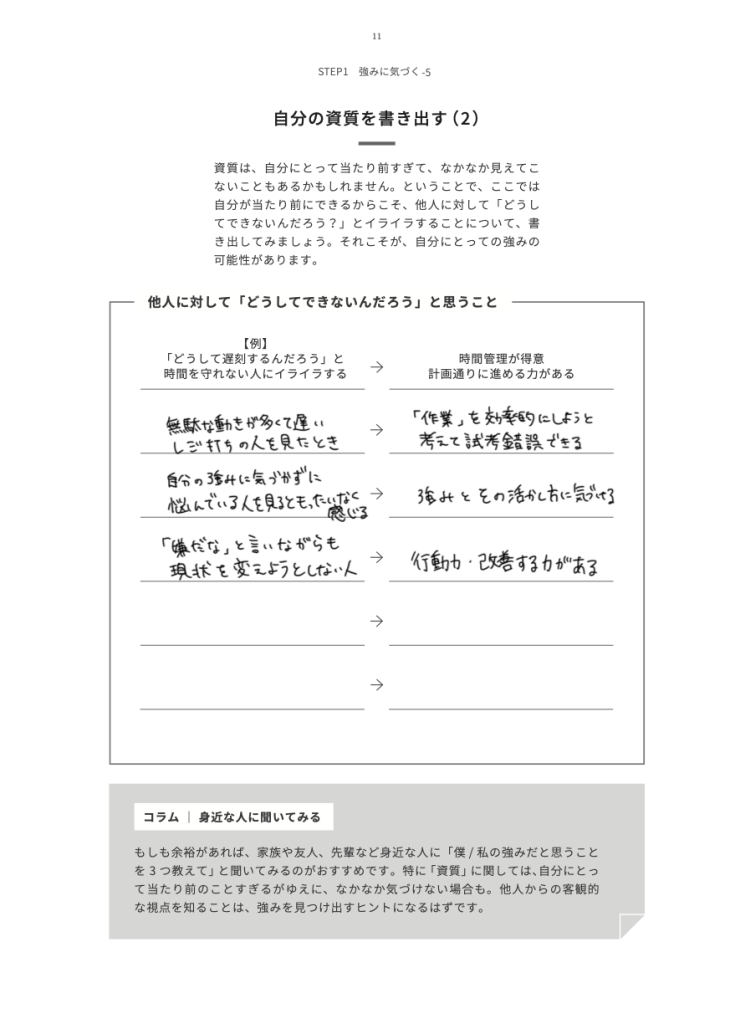 11
STEP1 強みに気づく-5
自分の資質を書き出す(2)
資質は、自分にとって当たり前すぎて、なかなか見えてこ
ないこともあるかもしれません。ということで、ここでは
自分が当たり前にできるからこそ、他人に対して「どうし
てできないんだろう？」とイライラすることについて、書
き出してみましょう。それこそが、自分にとっての強みの
可能性があります。
他人に対して「どうしてできないんだろう」と思うこと
【例】
「どうして遅刻するんだろう」と
時間を守れない人にイライラする
→
時間管理が得意
計画通りに進める力がある
無駄な動きが多くて遅い
しご打ちの人を見たとき
→
「作業」を効率的にしようと
考えて試考錯誤できる
自分の強みに気づかずに
悩んでいる人を見るともったいなく
感じる
→
強みとその活かし方に気づける
「嫌だな」と言いながらも
現状を変えようとしない人
→
行動力・改善する力がある
→
→
コラム｜身近な人に聞いてみる
もしも余裕があれば、家族や友人、先輩など身近な人に「僕/私の強みだと思うこと
を3つ教えて」と聞いてみるのがおすすめです。特に「資質」に関しては、自分にとっ
て当たり前のことすぎるがゆえに、なかなか気づけない場合も。他人からの客観的
な視点を知ることは、強みを見つけ出すヒントになるはずです。